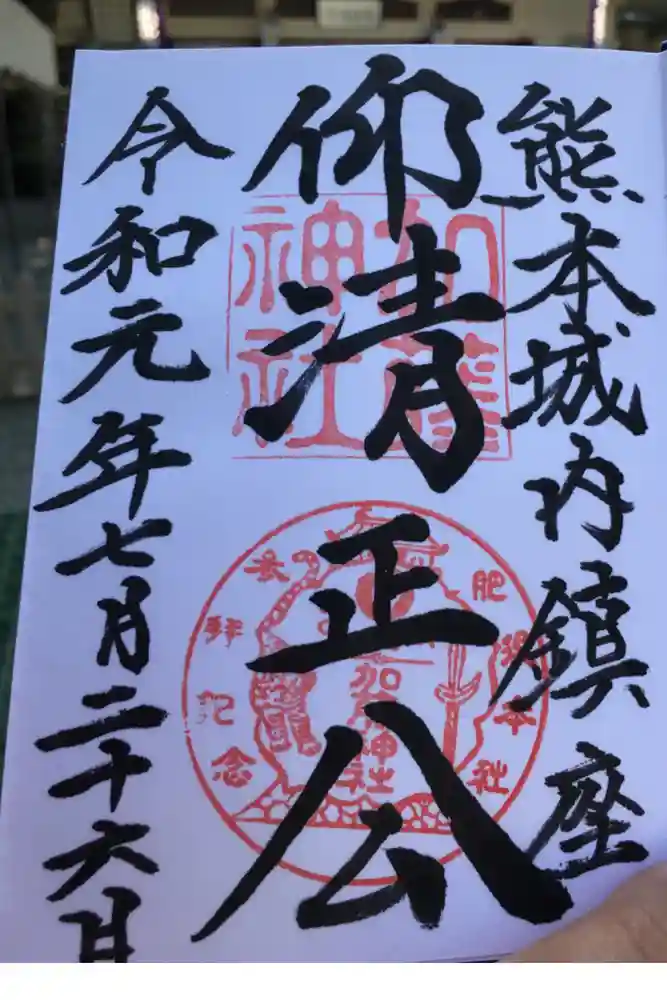 熊本城内鎮座
仰清正公
加藤神社
肥後本社
参拝記念
加藤神社
令和元年七月二十六日